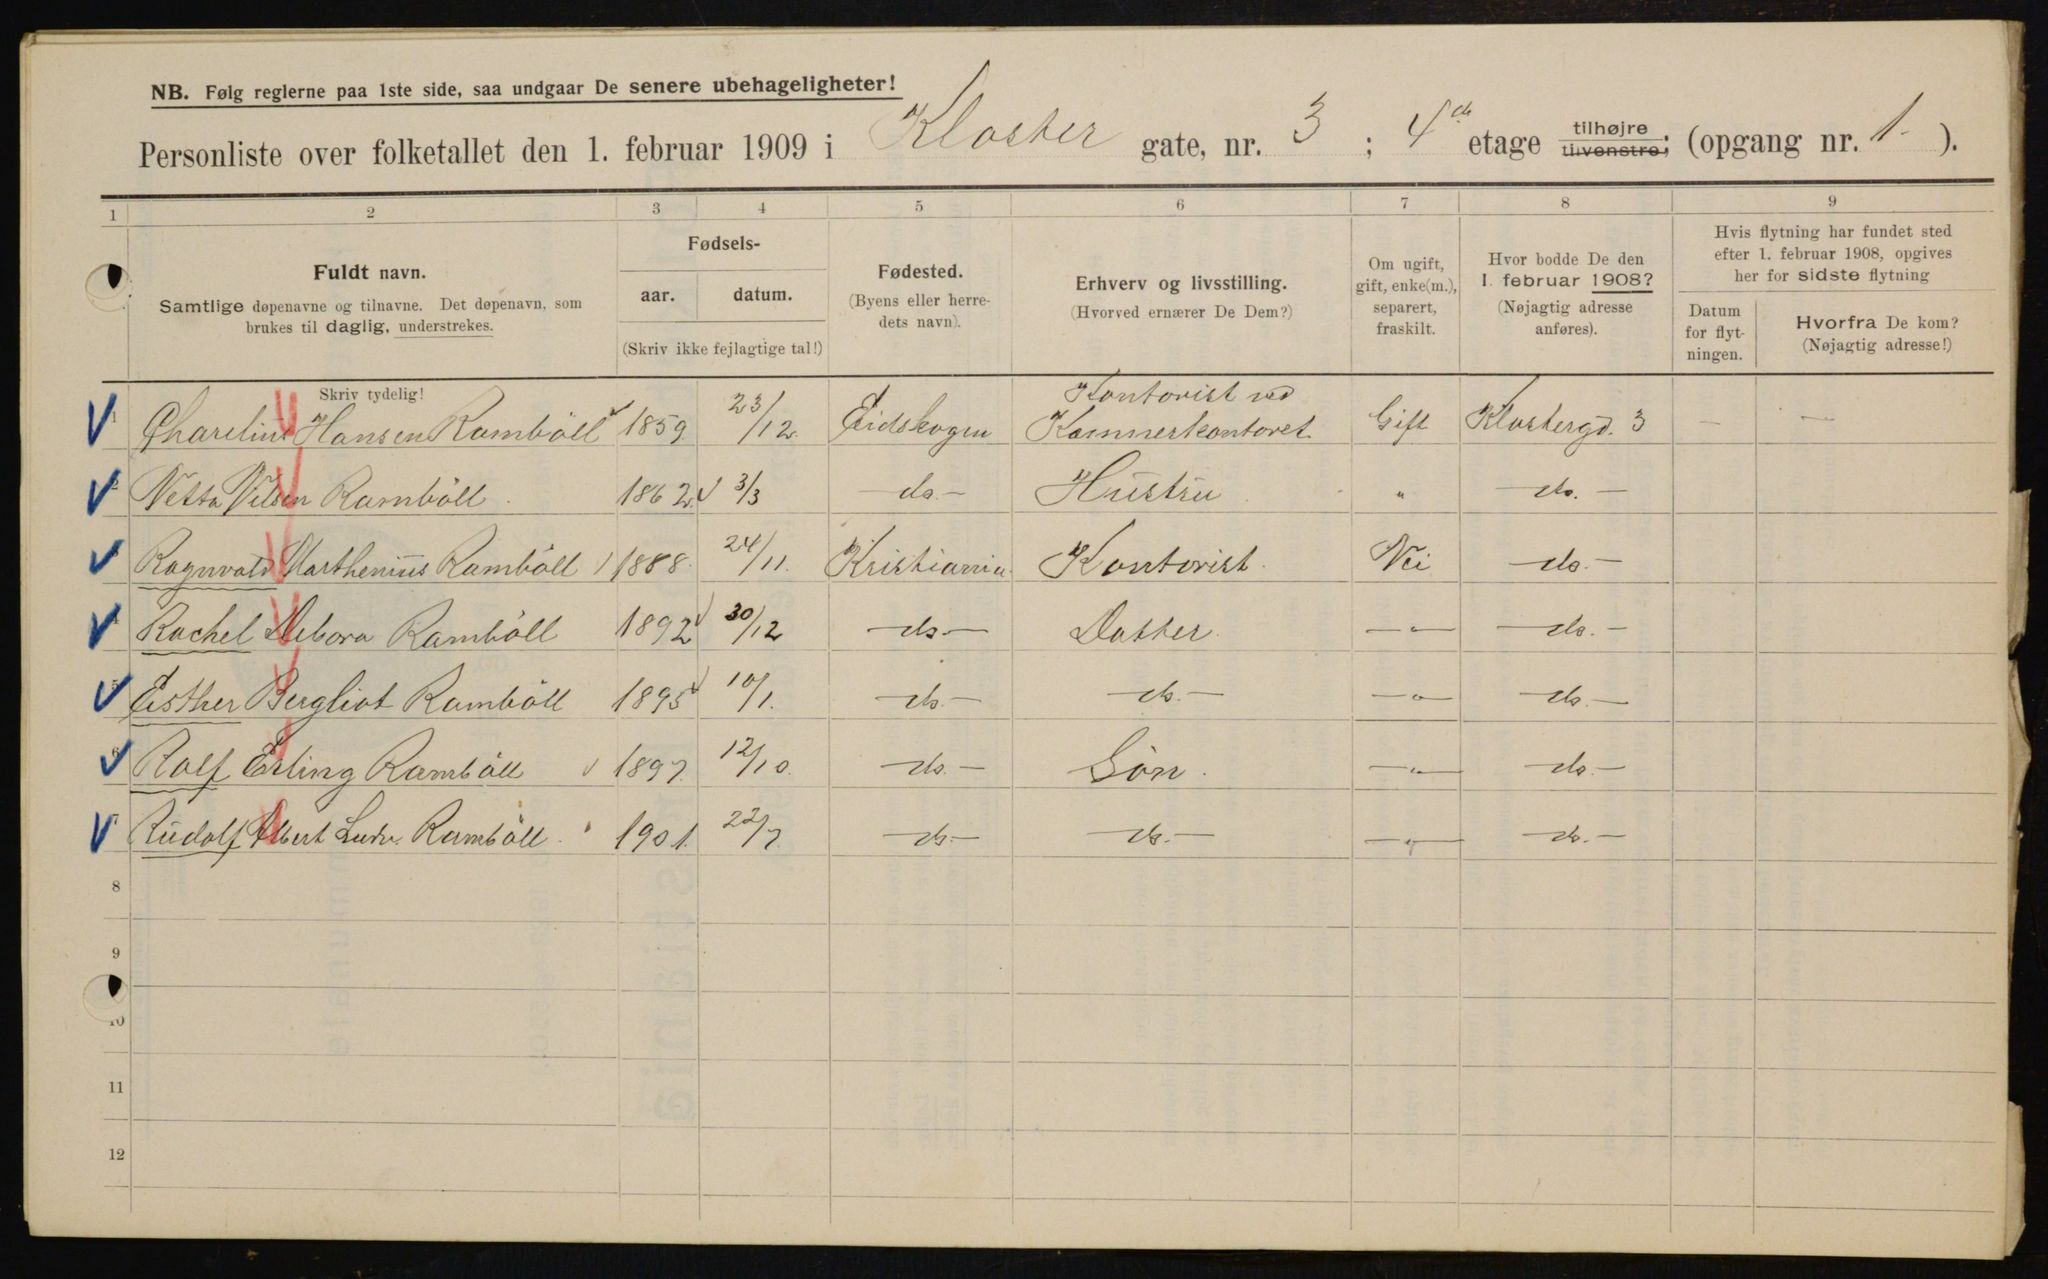 NB. Følg reglerne paa 1ste side, saa undgaar De senere ubehageligheter!
Personliste over folketallet den 1. februar 1909 i Kloster gate, nr. 3 ; 4de etage tilhøjre tilvenstre; (opgang nr. 1. ).
1 2 3 4 5 6 7 8 9
Fuldt navn.
Samtlige døpenavne og tilnavne. Det døpenavn, som
brukes til daglig, understrekes.
Fødsels-
aar. datum.
(Skriv ikke fejlagtige tal!)
Fødested.
(Byens eller herre-
dets navn).
Erhverv og livsstilling.
(Hvorved ernærer De Dem?)
Om ugift,
gift, enke(m.),
separert,
fraskilt.
Hvor bodde De den
1. februar 1908?
(Nøjagtig adresse
anføres).
Hvis flytning har fundet sted
efter 1. februar 1908, opgives
her for sidste flytning
Datum
for flyt-
ningen.
Hvorfra De kom?
(Nøjagtig adresse!)
Skriv tydelig!
1 Charelius Hansen Ramböll 1859 23/12. Eidskogen Kontorist ved Kæmnerkontoret Gift Klostergd. 3 — —
2 Netta Nilsen Ramböll. 1862. 3/3 — do. — Hustru „ — do. —
3 Ragnvald Marthenius Ramböll 1888. 24/11. Kristiania. Kontorist. Nei — do. —
4 Rachel Debora Ramböll 1892 30/12 — do. — Datter. — „ — — do. —
5 Esther Bergliot Ramböll 1895 10/1. — do. — — do. — — „ — — do. —
6 Rolf Erling Ramböll 1897. 12/10. — do. — Sön. — „ — — do. —
7 Rudolf Albert Ludv. Ramböll. 1901. 22/7 — do. — — do. — — „ — — do. —
8
9
10
11
12